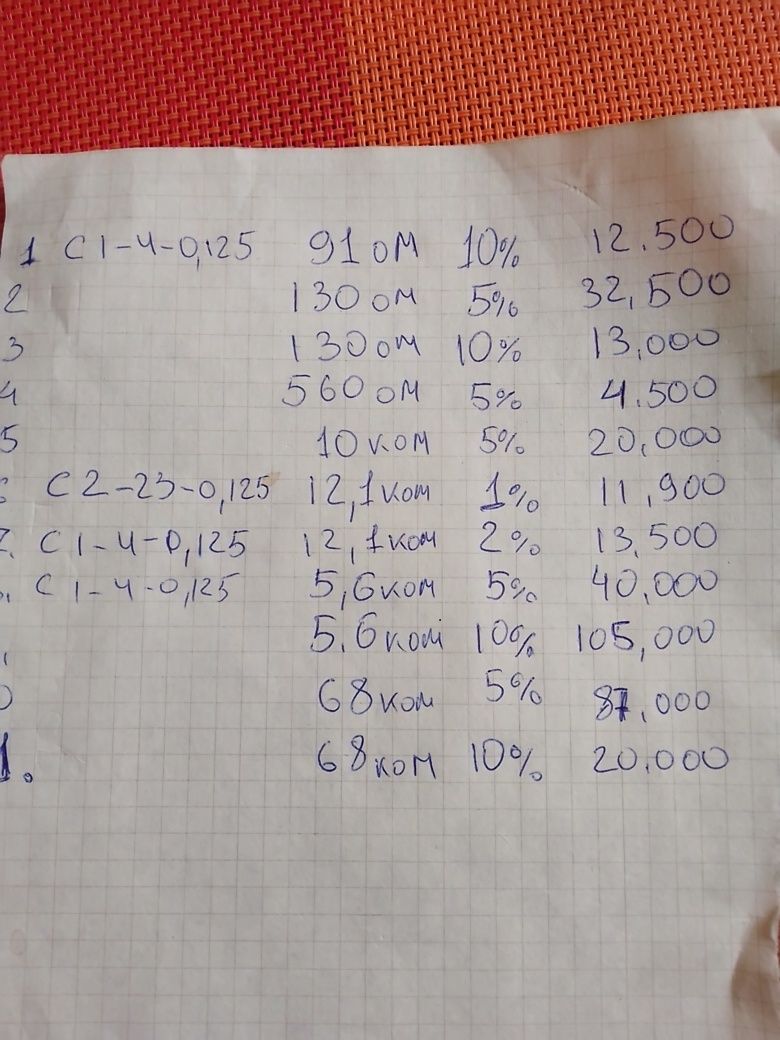 1 С1-4-0,125 91 ом 10% 12.500
2 130 ом 5% 32,500
3 130 ом 10% 13,000
4 560 ом 5% 4.500
5 10 ком 5% 20,000
С2-23-0,125 12,1 ком 1% 11,900
7. С1-4-0,125 12,1 ком 2% 13,500
. С1-4-0,125 5,6 ком 5% 40,000
. 5.6 ком 10% 105,000
0 68 ком 5% 87.000
1. 68 ком 10% 20.000